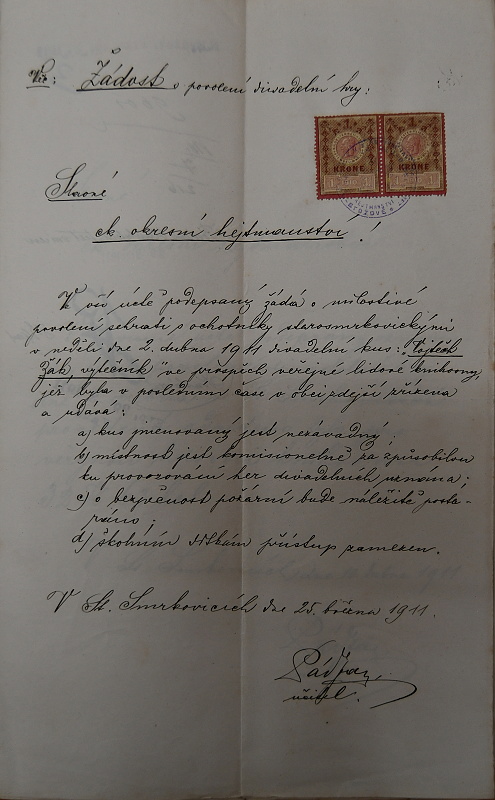 Věc: Žádost o povolení divadelní hry:
1 1
KRONE KRONE
1 1 1 1
Slavné
ck. okresní hejtmanství!
V vší úctě podepsaný žádá o milostivé
povolení sehrati s ochotníky starosmrkovickými
v neděli dne 2. dubna 1911 divadelní kus: „Vojtěch
Žák, výtečník" ve prospěch veřejné lidové knihovny,
jež byla v poslední čase v obci zdejší zřízena
a udává:
a) kus jmenovaný jest nezávadný;
b) místnost jest komisionelně za způsobilou
ku provozování her divadelních uznána;
c) o bezpečnost požární bude náležitě posta-
ráno;
d) školním dítkám přístup zamezen.
V St. Smrkovicích dne 25. března 1911.
učitel.